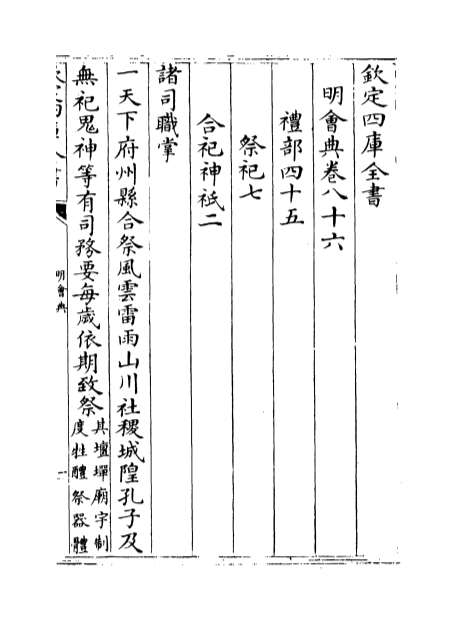 欽定四庫全書
明會典卷八十六
禮部四十五
祭祀七
合祀神祇二
諸司職掌
一天下府州縣合祭風雲雷雨山川社稷城隍孔子及
無祀鬼神等有司務要每歲依期致祭其壇墠廟宇制
度牲醴祭器體
明會典
一